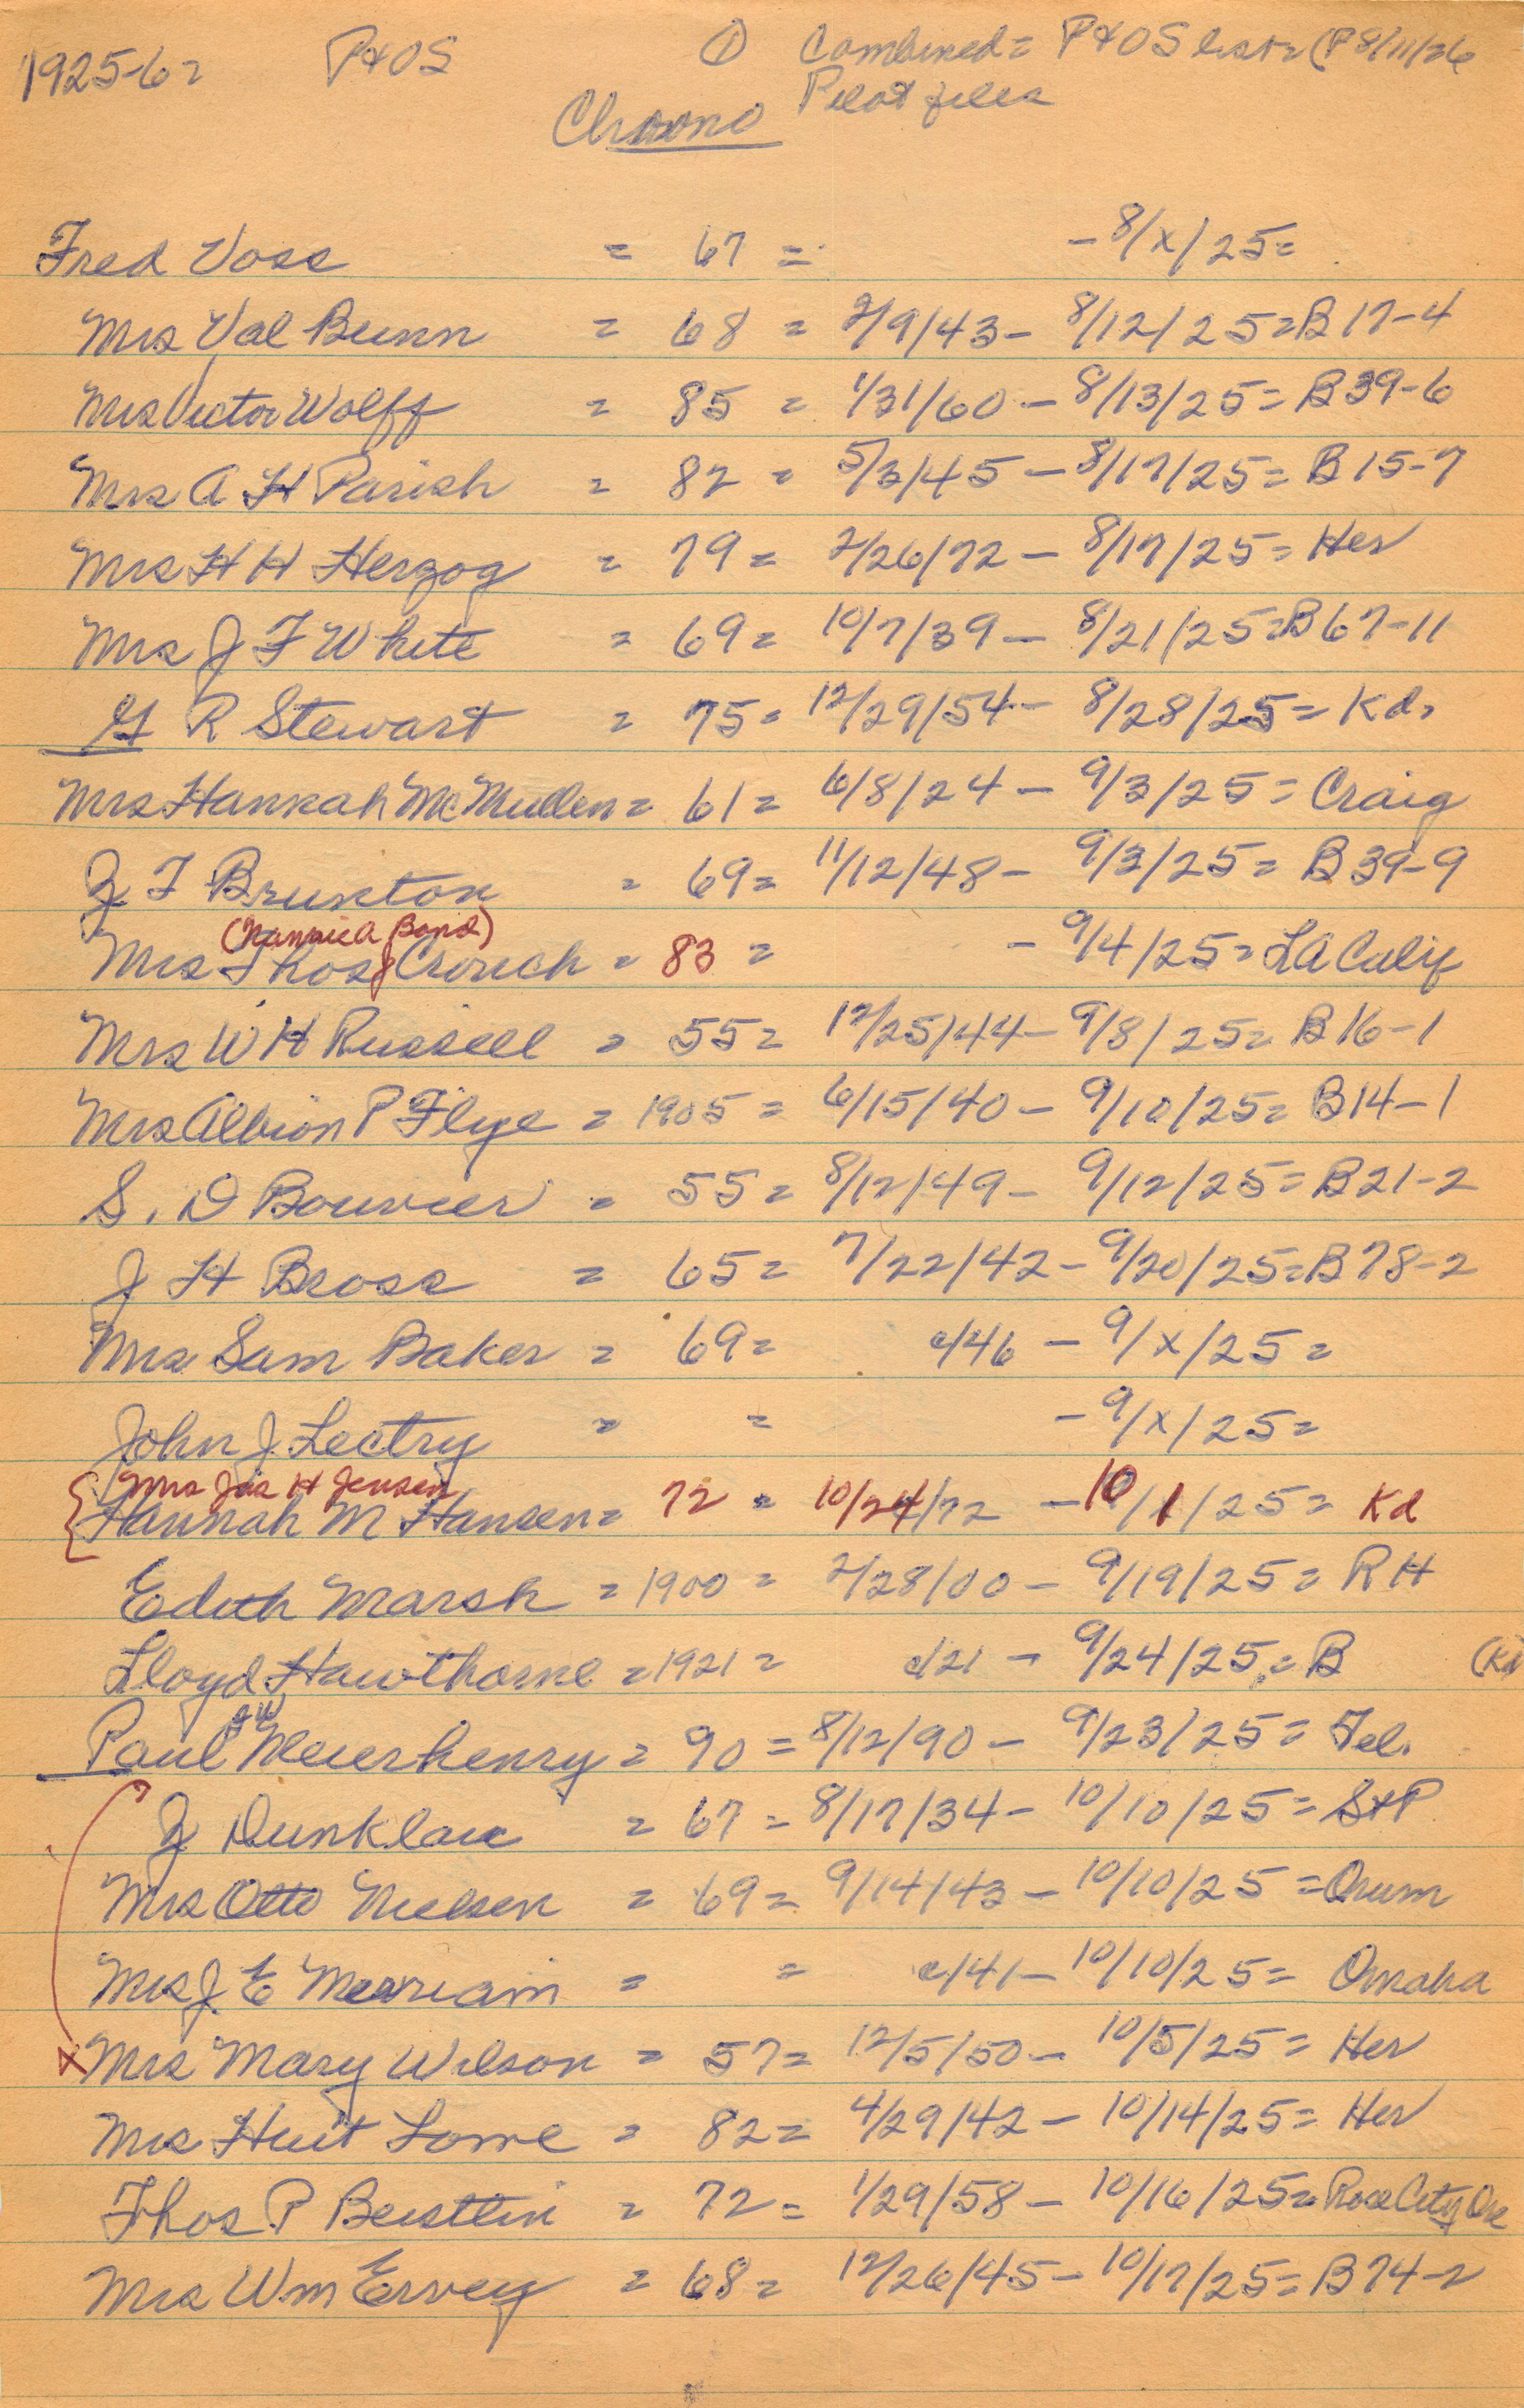 1925-6= P+OS ① Combined= P+OS list= (P 8/11/26
Pilot files
Chrono
Fred Voss = 67 = - 8/x/25=
Mrs Val Bunn = 68 = 2/9/43 - 8/12/25=B 17-4
Mrs Victor Wolff = 85 = 1/31/60 - 8/13/25= B39-6
Mrs A H Parish = 82 = 5/3/45 - 8/17/25= B15-7
Mrs H H Herzog = 79 = 2/26/72 - 8/17/25= Her
Mrs J F White = 69 = 10/7/39 - 8/21/25=B67-11
G R Stewart = 75= 12/29/54 - 8/28/25= Kd.
Mrs Hannah McMullen = 61 = 6/8/24 - 9/3/25= Craig
J F Brunton = 69= 11/12/48 - 9/3/25= B39-9
(Nannie A Bond)
Mrs Thos J Crouch = 83 = - 9/4/25= LA Calif
Mrs W H Russell = 55= 12/25/44 - 9/8/25= B16-1
Mrs Albion P Flye = 1905 = 6/15/40 - 9/10/25= B14-1
S. D Bouvier = 55= 8/12/49 - 9/12/25= B21-2
J H Bross = 65= 7/22/42 - 9/20/25=B78-2
Mrs Sam Baker = 69= c/46 - 9/x/25=
John J Lectry = = - 9/x/25=
Mrs Jas H Jensen
Hannah M Hansen= 72 = 10/24/72 - 10/1/25= Kd
Edith Marsh = 1900 = 2/28/00 - 9/19/25= RH
Lloyd Hawthorne =1921= c/21 - 9/24/25= B (Kd
Paul Meierhenry = 90 = 8/12/90 - 9/23/25= Tel.
J Dunklau = 67 = 8/17/34 - 10/10/25= S+P
Mrs Otto Nielsen = 69= 9/14/43 - 10/10/25 =Orum
Mrs J E Merriam = = c/41 - 10/10/25= Omaha
x Mrs Mary Wilson = 57= 12/5/50 - 10/5/25= Her
Mrs Huit Lowe = 82= 4/29/42 - 10/14/25= Her
Thos P Beistlin = 72= 1/29/58 - 10/16/25= Rose City Ore
Mrs Wm Ervey = 68= 12/26/45 - 10/17/25= B74-2